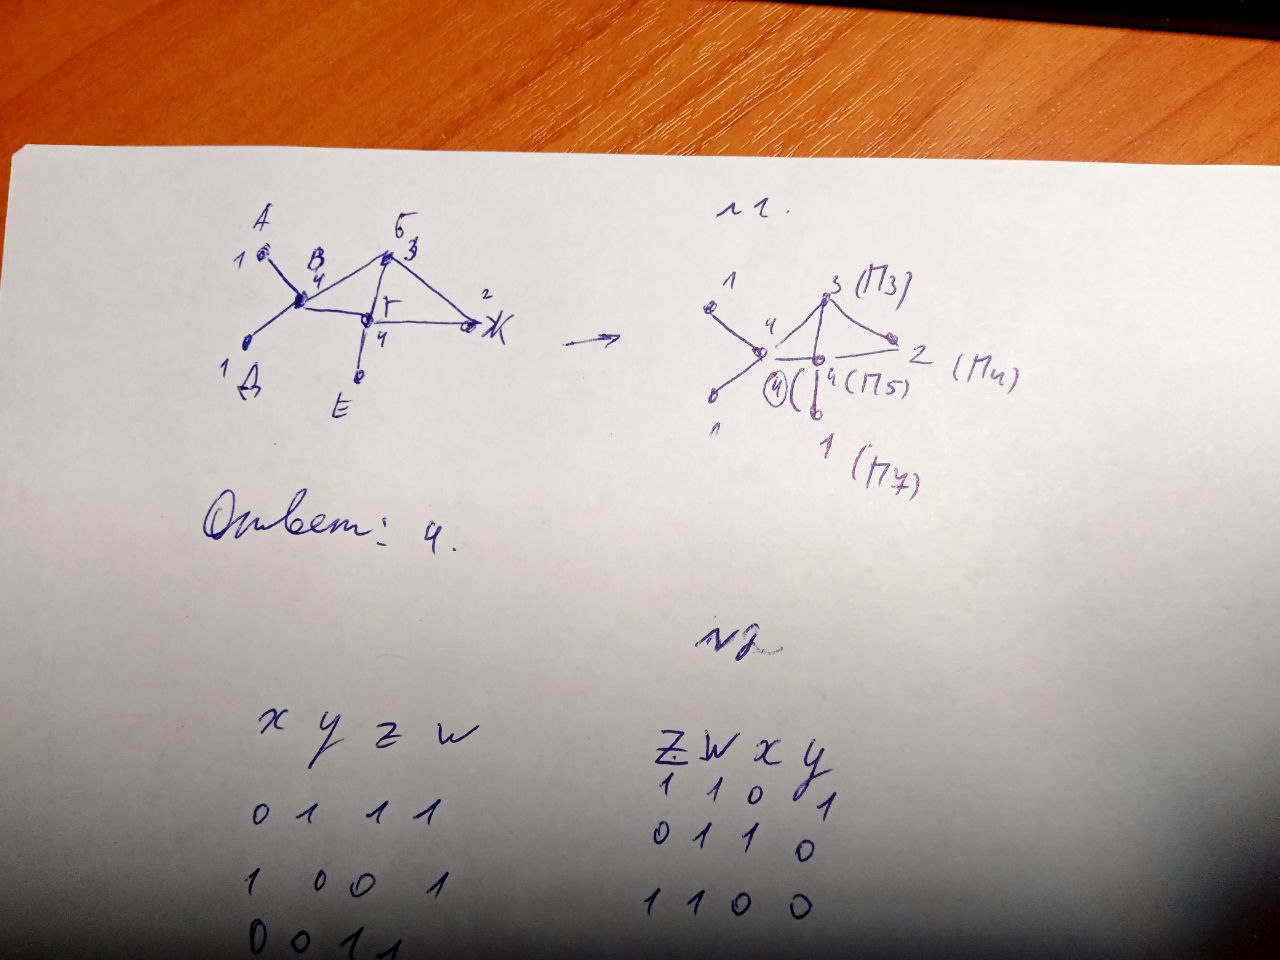 А
1
В
4
Б
3
Г
4
2
Ж
1
Д
Е
→
№1.
1
4
3 (П3)
2 (П4)
④( 4 (П5)
1
1 (П7)
Ответ: 4.
№2
x y z w
0 1 1 1
1 0 0 1
0 0 1 1
z w x y
1 1 0 1
0 1 1 0
1 1 0 0